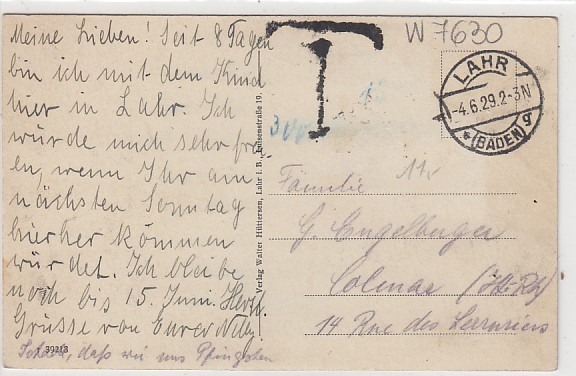 Meine Lieben! Seit 8 Tagen
bin ich mit dem Kind
hier in Lahr. Ich
würde mich sehr freu-
en, wenn Ihr am
nächsten Sonntag
hierher kommen
würdet. Ich bleibe
noch bis 15. Juni. Herzl.
Grüsse von Eurer Nelly!
Schade, daß wir uns Pfingsten
39213
Verlag Walter Hüttersen, Lahr i. B., Luisenstraße 19.
T
300
W 7630
LAHR
-4.6.29.2-3N
*(BADEN) g
Familie
G. Engelberger
Colmar (Ht-Rh)
14 Rue des Serruriers